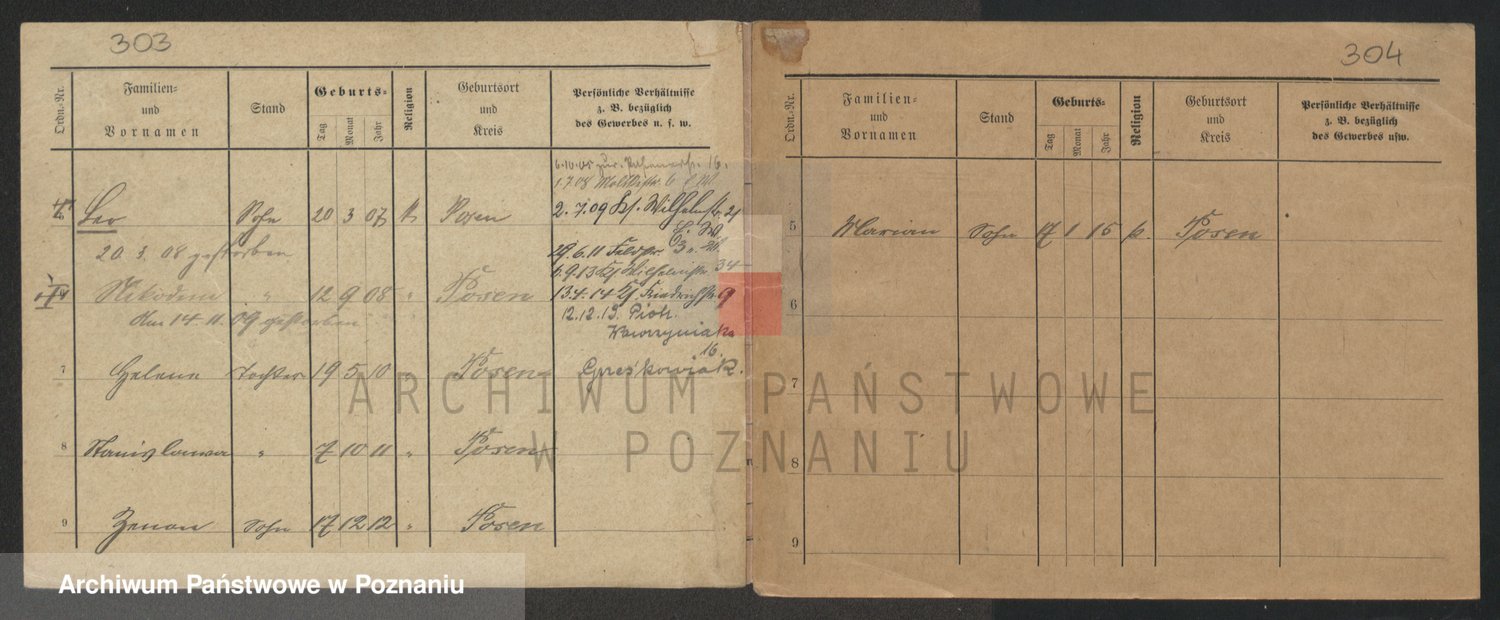 303
Ordn.-Nr.
Familien-
und
Vornamen
Stand
Geburts-
Tag
Monat
Jahr
Religion
Geburtsort
und
Kreis
Persönliche Verhältnisse
z. B. bezüglich
des Gewerbes n. s. w.
6.10.08
1.7.08 Moltkestr. 6
Leo Sohn 20 3 07 k Posen 2.7.09 Wilhelmstr. 21
20. 3. 08 gestorben
29.6.11
6.9.13 Wilhelmstr. 34
Nikodem " 12 9 08 " Posen 13.4.14 Friedrichstr 9
den 14. 11. 09 gestorben
12.12.19. Piotr.
Wawrzyniaka
16.
7 Helene Tochter 19 5 10 " Posen Greśkowiak.
8 Stanislawa " 7 10 11 " Posen
9 Zenon Sohn 17 12 12 " Posen
304
Ordn.-Nr.
Familien-
und
Vornamen
Stand
Geburts-
Tag
Monat
Jahr
Religion
Geburtsort
und
Kreis
Persönliche Verhältnisse
z. B. bezüglich
des Gewerbes usw.
5 Marian Sohn 17 1 15 k. Posen
6
7
8
9
ARCHIWUM PAŃSTWOWE
W POZNANIU
Archiwum Państwowe w Poznaniu